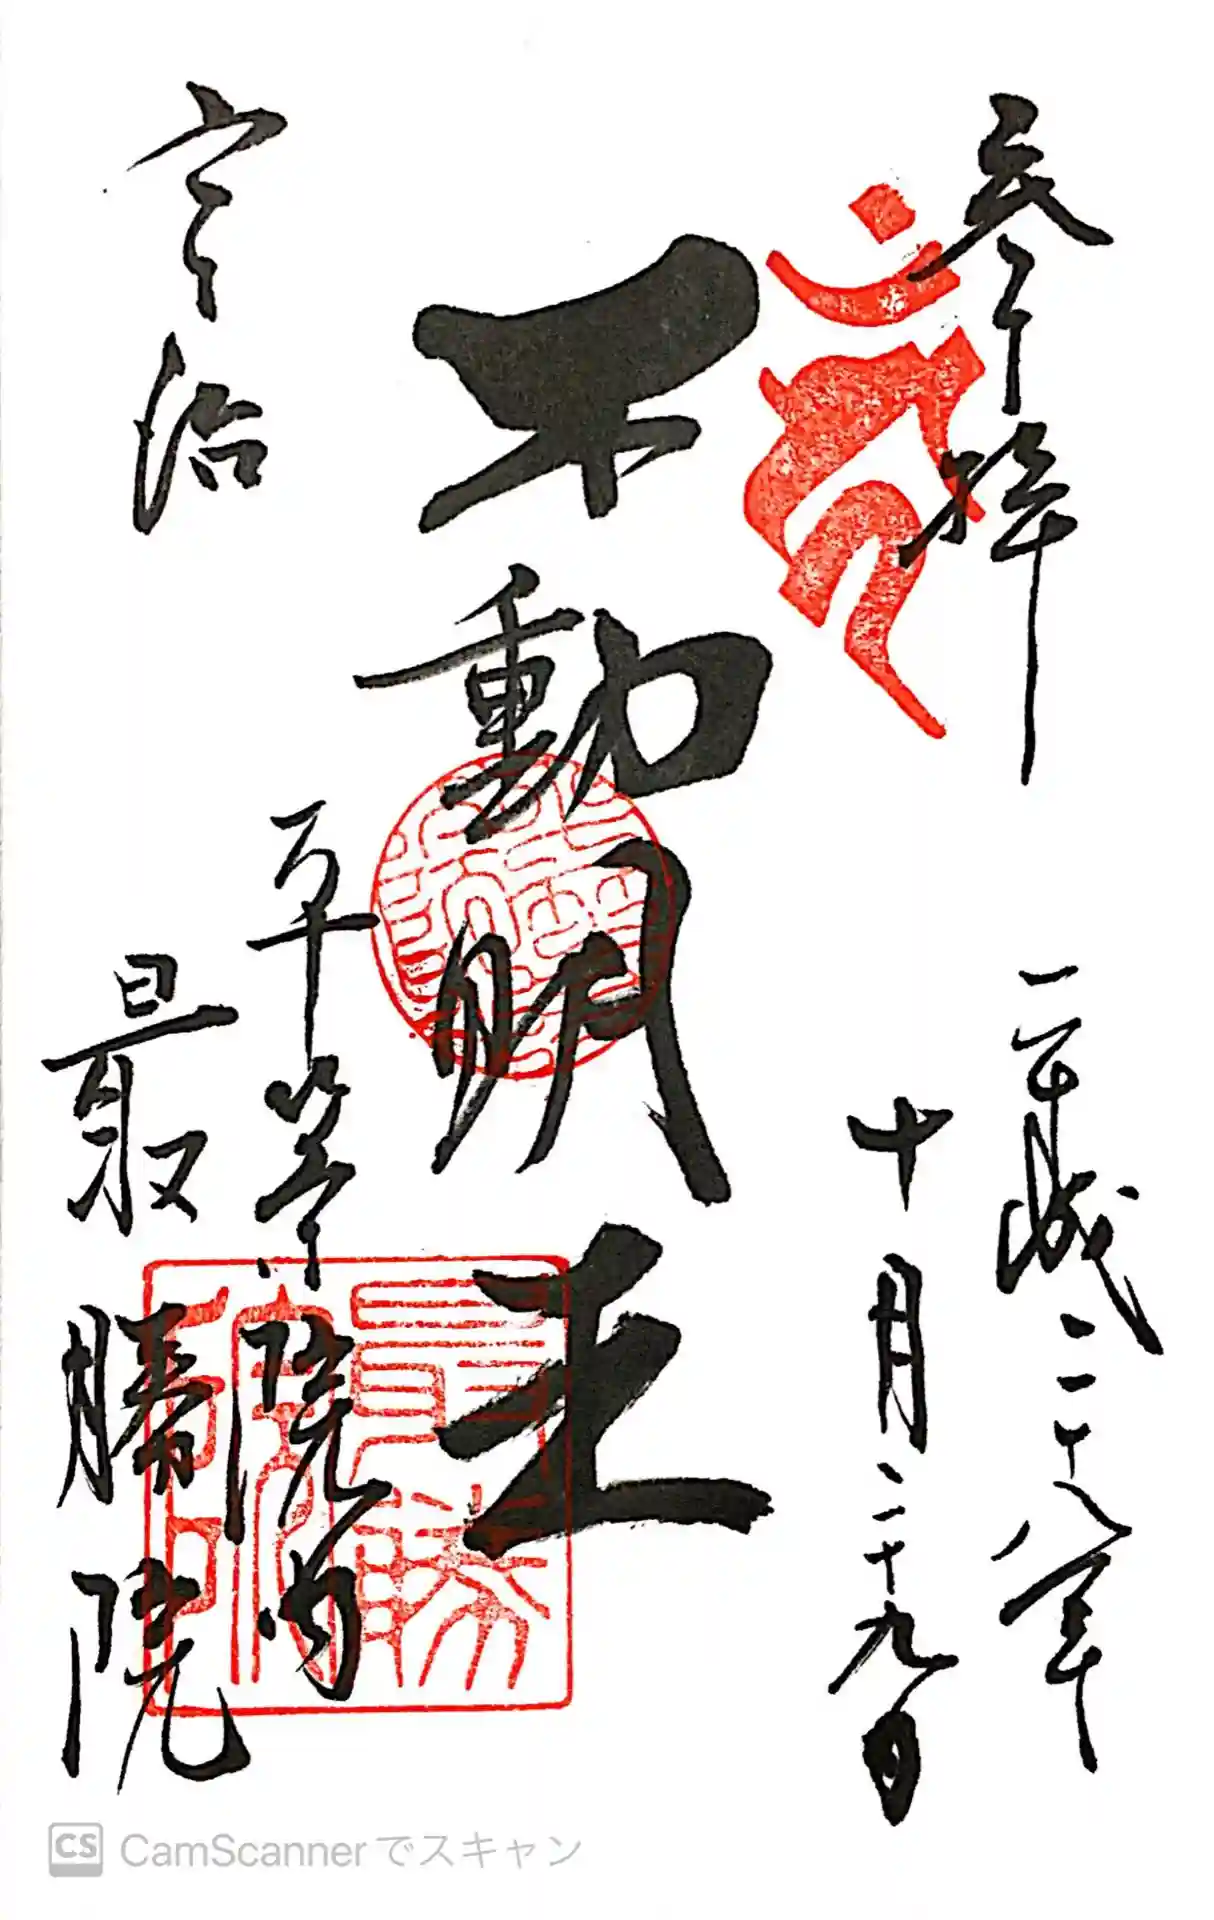 参拝
平成二十八年
十月二十九日
不動明王
宇治
平等院内
最勝院
最勝
院印
CS CamScannerでスキャン